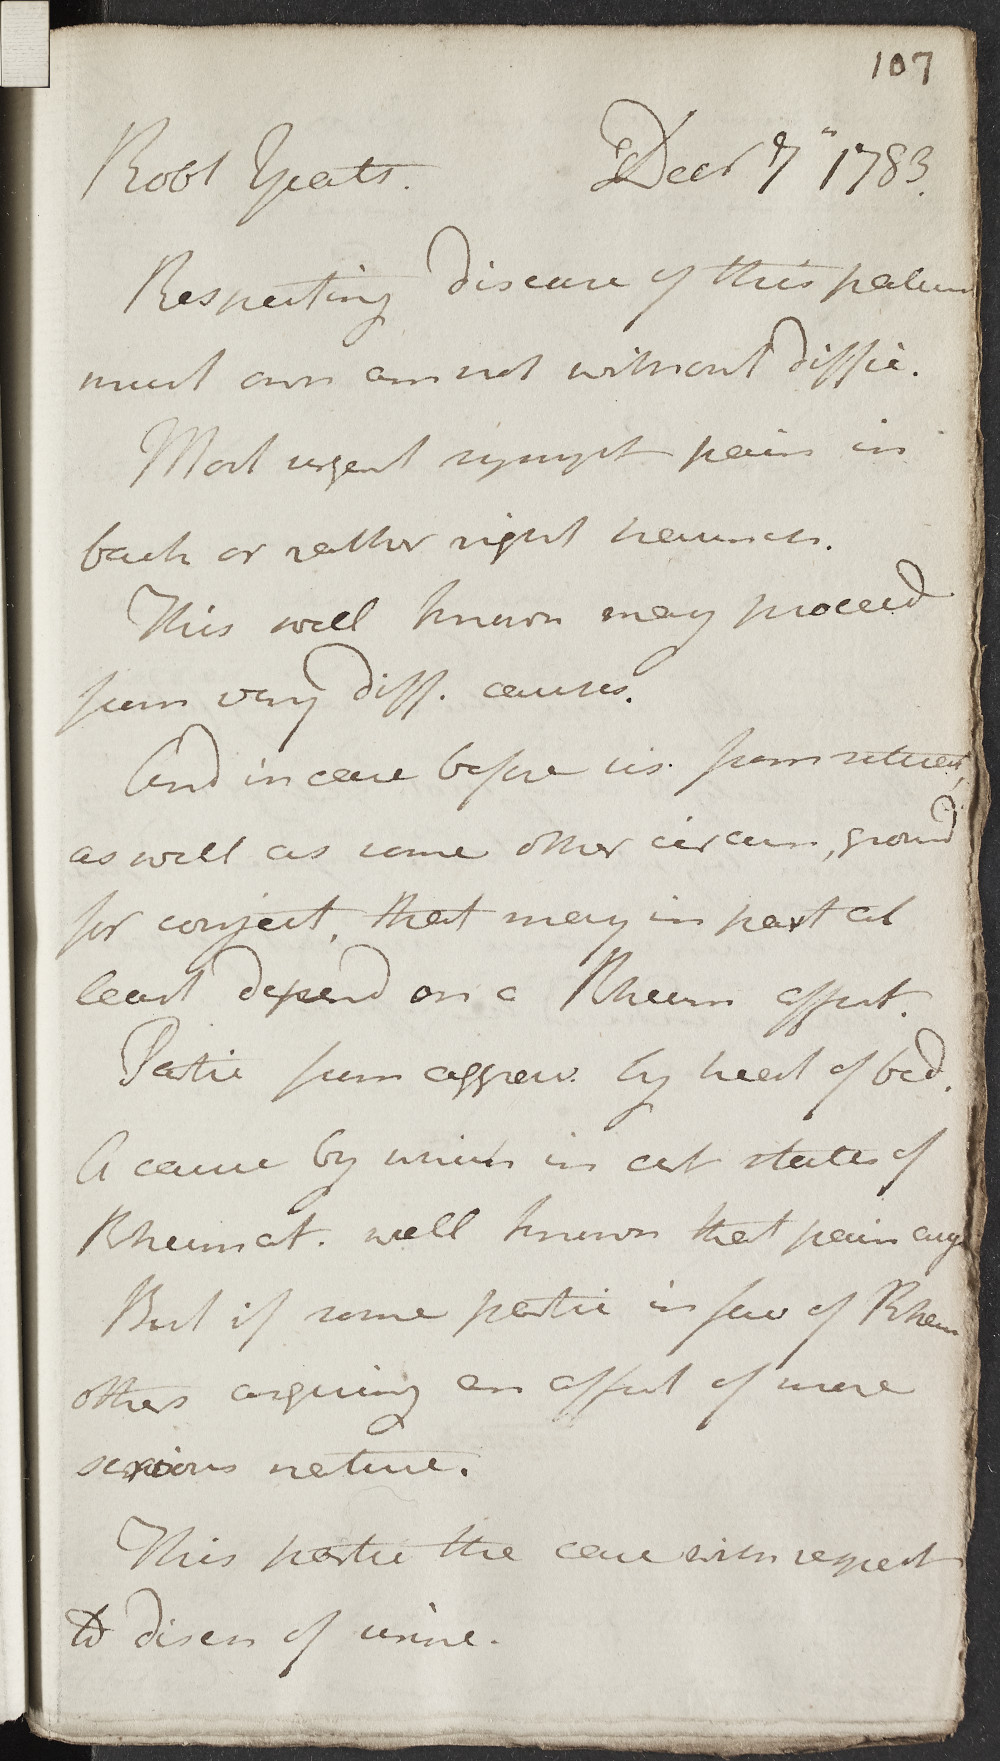 107
Robt Yeats. Decr 7" 1783.
Respecting disease of this patien
must own am not without diffic.
Most urgent sympt pain in
back or rather right haunch.
This well known may proceed
from very diff. causes.
And in case before us. from situat,
as well as some other circum, ground
for conject, that may in part at
least depend on a Rheum affect.
Partic from aggrav. by heat of bed.
A cause by which in cert states of
Rheumat. well known that pain aug
But if some partic in fav of Rheu
others arguing an affect of more
serious nature.
This partic the case with respect
to disch of urine.